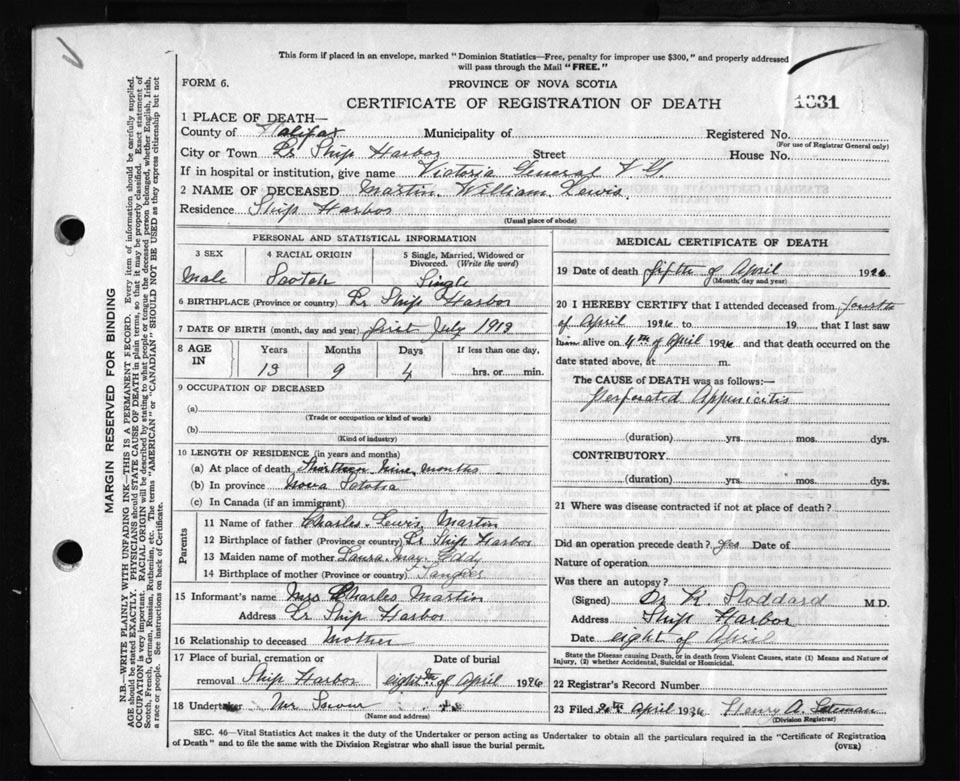 This form if placed in an envelope, marked "Dominion Statistics—Free, penalty for improper use $300," and properly addressed
will pass through the Mail "FREE."
FORM 6.
PROVINCE OF NOVA SCOTIA
CERTIFICATE OF REGISTRATION OF DEATH
1831
1 PLACE OF DEATH—
County of Halifax Municipality of Registered No.
(For use of Registrar General only)
City or Town Lr Ship Harbor Street House No.
If in hospital or institution, give name Victoria General V G.
2 NAME OF DECEASED Martin William Lewis
Residence Ship Harbor
(Usual place of abode)
PERSONAL AND STATISTICAL INFORMATION
3 SEX 4 RACIAL ORIGIN 5 Single, Married, Widowed or Divorced. (Write the word)
Male Scotch Single
6 BIRTHPLACE (Province or country) Lr Ship Harbor
7 DATE OF BIRTH (month, day and year) first July 1912
8 AGE IN Years Months Days If less than one day,
13 9 4 hrs. or min.
9 OCCUPATION OF DECEASED
(a)
(Trade or occupation or kind of work)
(b)
(Kind of industry)
10 LENGTH OF RESIDENCE (in years and months)
(a) At place of death Thirteen Nine months
(b) In province Nova Scotia
(c) In Canada (if an immigrant)
Parents
11 Name of father Charles Lewis Martin
12 Birthplace of father (Province or country) Lr Ship Harbor
13 Maiden name of mother Laura May
14 Birthplace of mother (Province or country) Tangier
15 Informant's name Mrs Charles Martin
Address Lr Ship Harbor
16 Relationship to deceased Mother
17 Place of burial, cremation or removal Ship Harbor Date of burial eighth of April 1926
18 Undertaker Mr
(Name and address)
MEDICAL CERTIFICATE OF DEATH
19 Date of death fifth of April 1926
(Month, day and year)
20 I HEREBY CERTIFY that I attended deceased from fourth
of April 1926 to 19 , that I last saw
him alive on 4th of April 1926 and that death occurred on the
date stated above, at m.
The CAUSE OF DEATH was as follows:—
Perforated Appinicitis
(duration) yrs. mos. dys.
CONTRIBUTORY
(duration) yrs. mos. dys.
21 Where was disease contracted if not at place of death?
Did an operation precede death? Yes Date of
Nature of operation
Was there an autopsy?
(Signed) Dr K. Stoddard M.D.
Address Ship Harbor
Date eight of April
State the Disease causing Death, or in death from Violent Causes, state (1) Means and Nature of
Injury, (2) whether Accidental, Suicidal or Homicidal.
22 Registrar's Record Number
23 Filed April 1926 Henry A.
(Division Registrar)
SEC. 46—Vital Statistics Act makes it the duty of the Undertaker or person acting as Undertaker to obtain all the particulars required in the "Certificate of Registration
of Death" and to file the same with the Division Registrar who shall issue the burial permit.
(OVER)
MARGIN RESERVED FOR BINDING
N.B.—WRITE PLAINLY WITH UNFADING INK—THIS IS A PERMANENT RECORD. Every item of information should be carefully supplied.
AGE should be stated EXACTLY. PHYSICIANS should STATE CAUSE OF DEATH in plain terms, so that it may be properly classified. Exact statement of
OCCUPATION is very important. RACIAL ORIGIN will be described by stating to what people or tongue the deceased person belonged, whether English, Irish,
Scotch, French, German, Russian, Ruthenian, etc. The terms "AMERICAN" or "CANADIAN" SHOULD NOT BE USED as they express citizenship but not
a race or people. See instructions on back of Certificate.